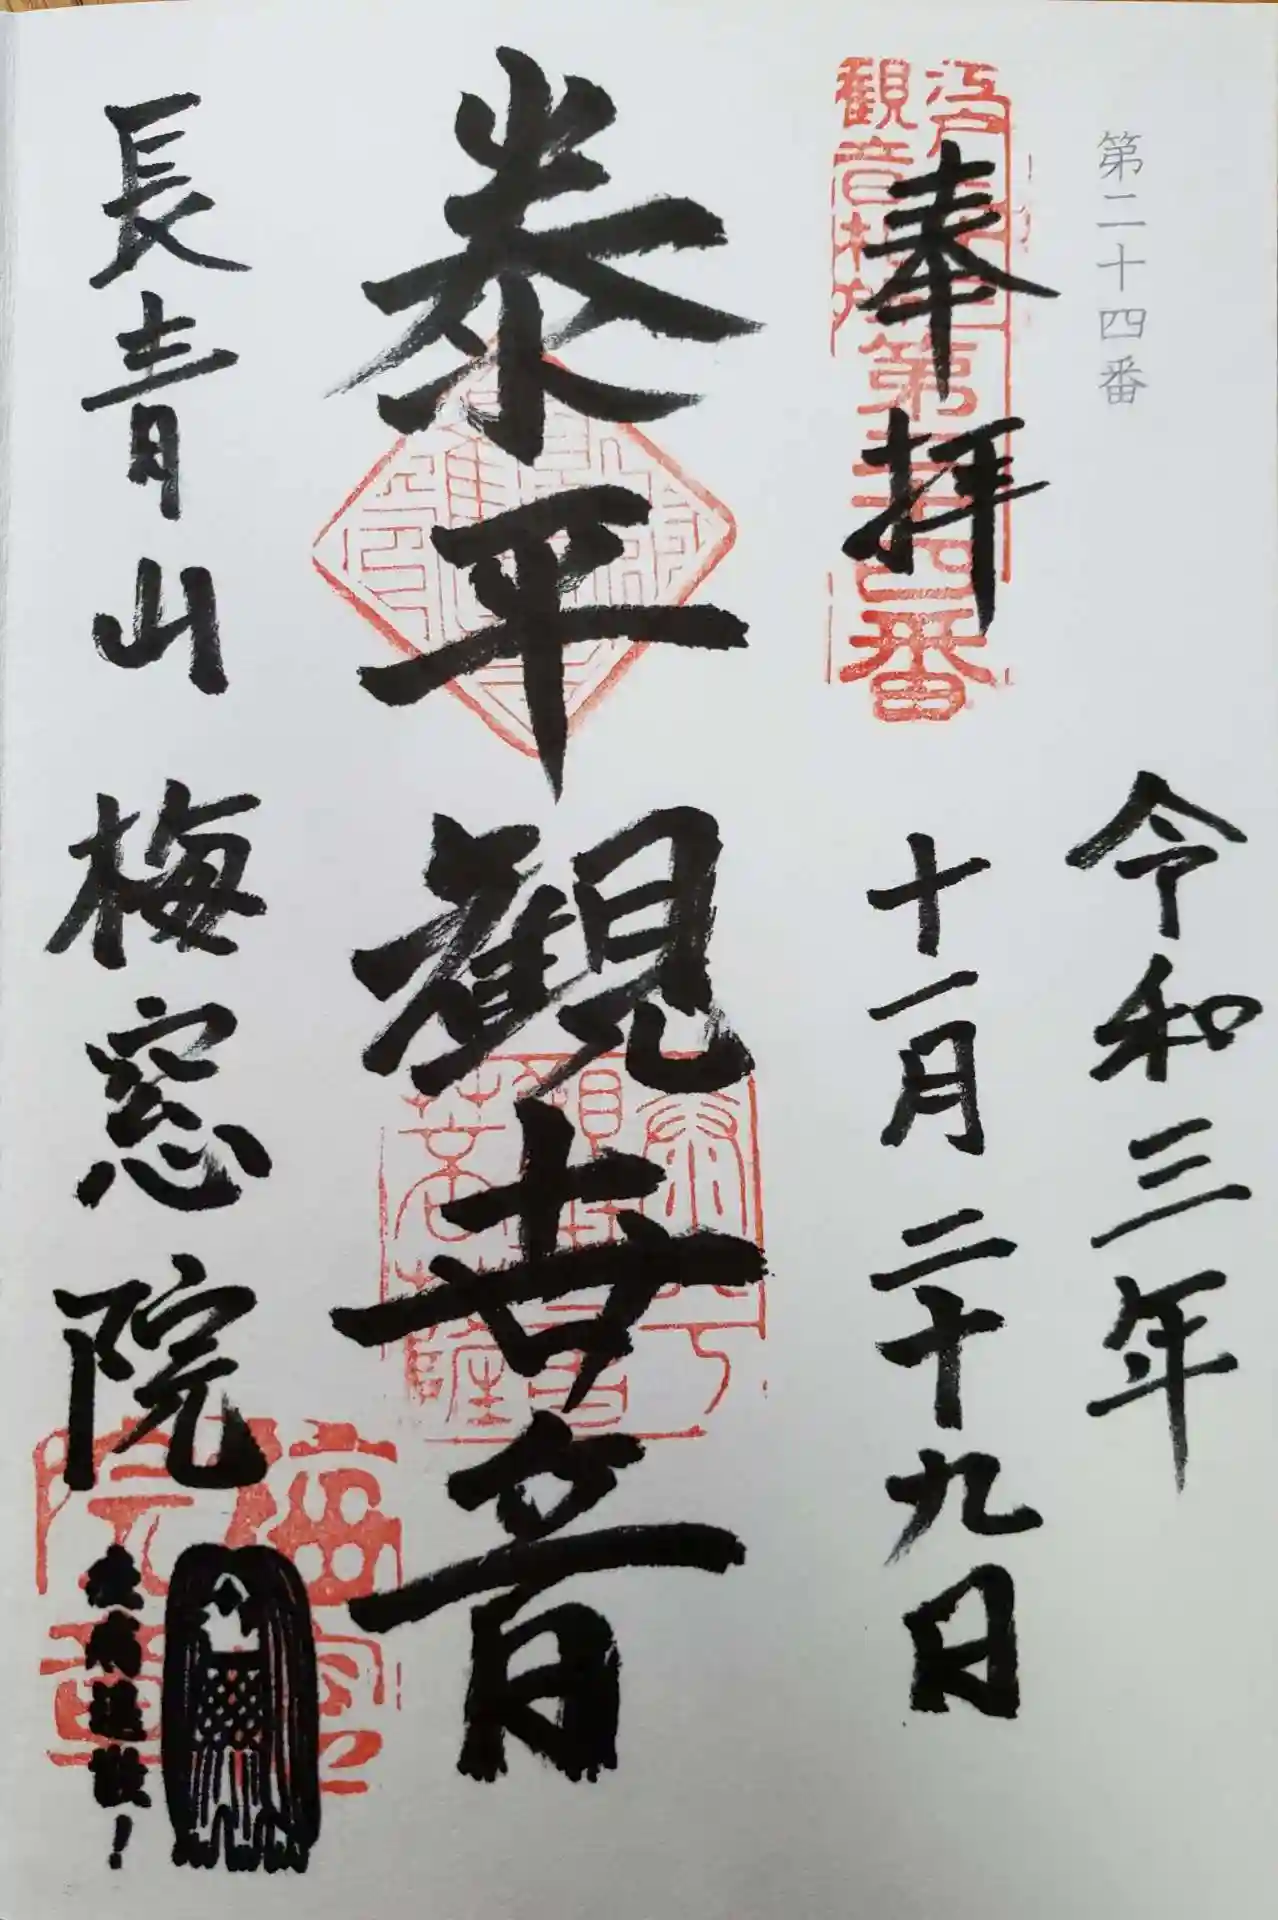 第二十四番
令和三年
奉拝
十一月二十九日
江戸
観音札所
第廿四番
泰平観世音
長青山
梅窓院
疫病退散！